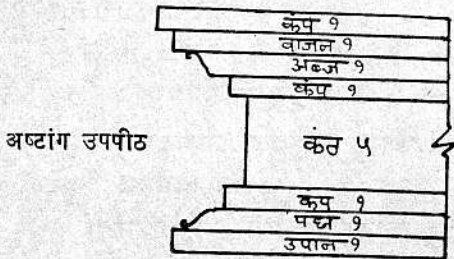 कंप १
वाजन १
अब्ज १
कंप १
अष्टांग उपपीठ
कंठ ५
कंप १
पद्म १
उपान १